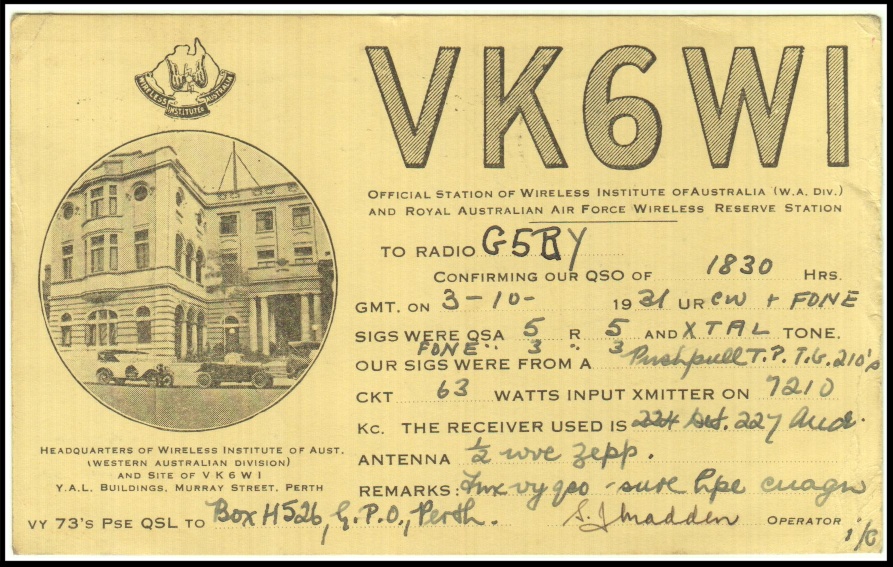 WIRELESS INSTITUTE AUSTRALIA
VK6WI
OFFICIAL STATION OF WIRELESS INSTITUTE OF AUSTRALIA (W.A. DIV.)
AND ROYAL AUSTRALIAN AIR FORCE WIRELESS RESERVE STATION
TO RADIO G5BY
CONFIRMING OUR QSO OF 1830 HRS.
GMT. ON 3-10- 1931 UR CW + FONE
SIGS WERE QSA 5 R 5 AND XTAL TONE.
FONE " 3 " 3
OUR SIGS WERE FROM A Pushpull T.P.T.G. 210's
CKT 63 WATTS INPUT XMITTER ON 7210
KC. THE RECEIVER USED IS 224 Det. 227 Aud.
ANTENNA ½ wve Zepp.
REMARKS: Tnx vy qso - sure hpe cuagn
S. J. Madden OPERATOR
i/c
HEADQUARTERS OF WIRELESS INSTITUTE OF AUST.
(WESTERN AUSTRALIAN DIVISION)
AND SITE OF VK6WI
Y.A.L. BUILDINGS, MURRAY STREET, PERTH
VY 73'S PSE QSL TO Box H526, G.P.O., Perth.